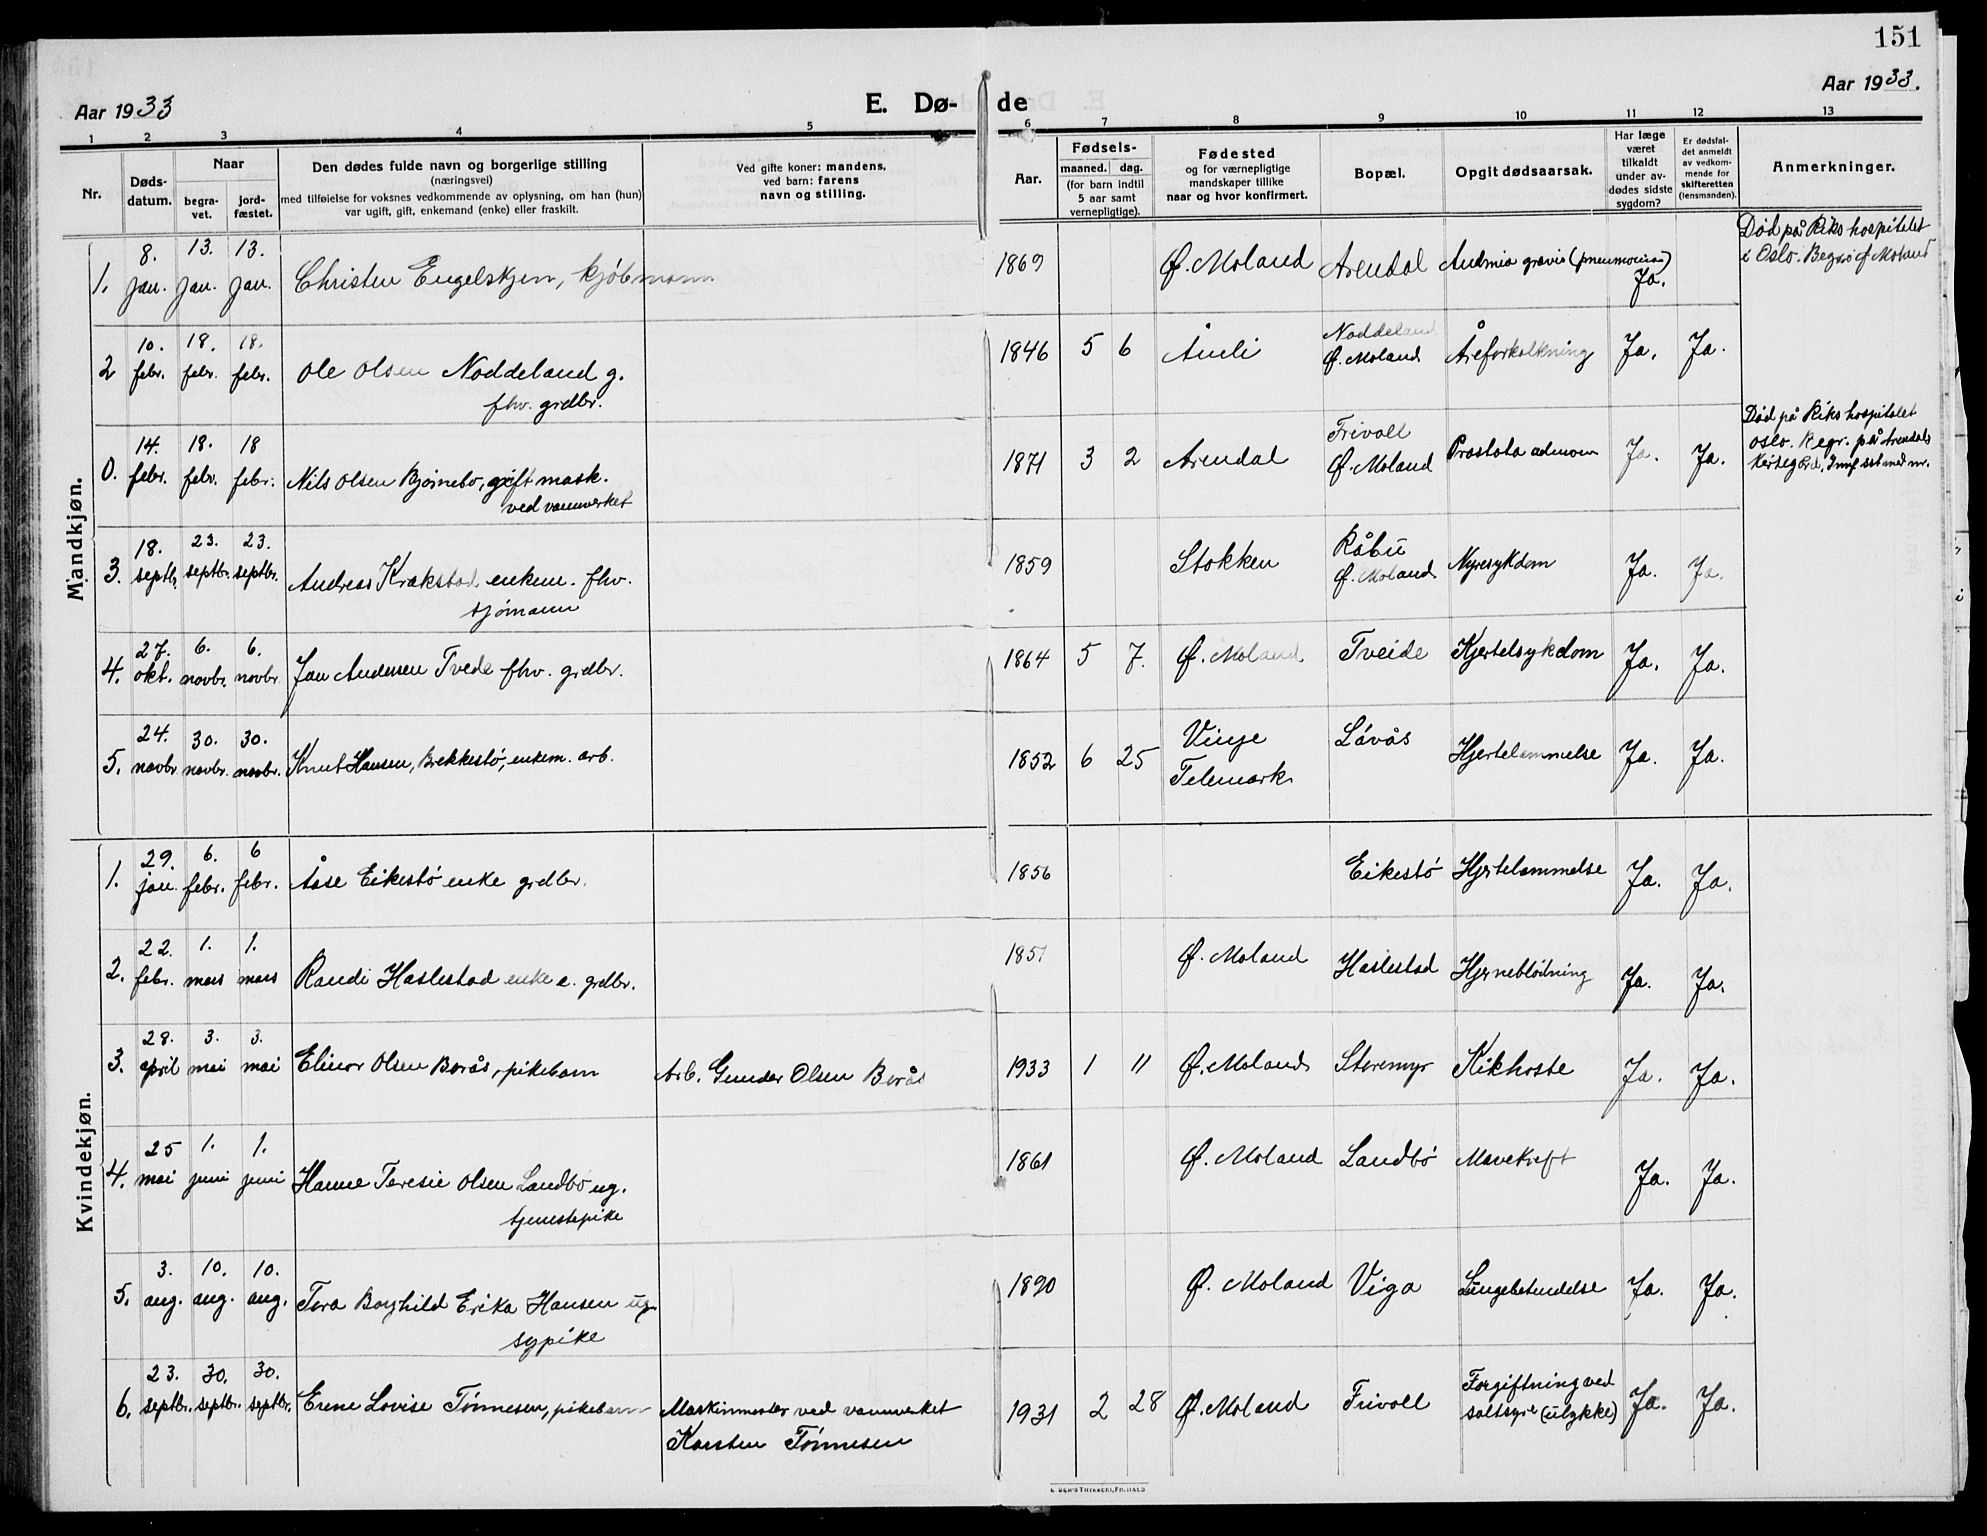 151
Aar 1933
E. Dø-
de
Aar 1933.
1 2 3 4 5 6 7 8 9 10 11 12 13
Nr.
Døds-
datum.
Naar
begra-
vet.
jord-
fæstet.
Den dødes fulde navn og borgerlige stilling
(næringsvei)
med tilføielse for voksnes vedkommende av oplysning, om han (hun)
var ugift, gift, enkemand (enke) eller fraskilt.
Ved gifte koner: mandens,
ved barn: farens
navn og stilling.
Aar.
Fødsels-
maaned. dag.
(for barn indtil
5 aar samt
vernepligtige).
Fødested
og for værnepligtige
mandskaper tillike
naar og hvor konfirmert.
Bopæl.
Opgit dødsaarsak.
Har læge
været
tilkaldt
under av-
dødes sidste
sygdom?
Er dødsfal-
det anmeldt
av vedkom-
mende for
skifteretten
(lensmanden).
Anmerkninger.
Mandkjøn.
1. 8. jan. 13. jan. 13. jan. Christen Engelskjen, kjøbmann 1869 Ø. Moland Arendal gravis (pneumonia) Ja.
Død på Rikshospitalet
i Oslo. Begr. i Ø Moland
2 10. febr. 18. febr. 18. febr. Ole Olsen Noddeland g.
fhv. grdbr.
1846 5 6 Åmli Noddeland
Ø. Moland
Åreforkalkning Ja. Ja.
0. 14. febr. 18. febr. 18 febr. Nils Olsen Bjørnebo, gift mask.
ved vannverket
1871 3 2 Arendal Frivoll
Ø. Moland
Prostata adenom Ja. Ja.
Død på Rikshospitalet
Oslo. Begr. på Arendals
3. 18. septbr. 23. septbr. 23. septbr. Andreas Krakstad enkem. fhv.
sjømann
1859 Stokken Råbu
Ø. Moland
Nyresykdom Ja. Ja.
4. 27. okt. 6. novbr. 6. novbr. Jan Andersen Tvede fhv. grdbr.
1864 5 7. Ø. Moland Tveide Kjertelsykdom Ja. Ja.
5. 24. novbr 30. novbr. 30. novbr. Knut Hansen, Brekkestø, enkem. arb.
1852 6 25 Vinje
Telemark
Låvås Hjertelammelse Ja. Ja.
Kvindekjøn.
1. 29. jan. 6. febr. 6 febr. Åse Eikestø enke grdbr.
1856 Eikestø Hjertelammelse Ja. Ja.
2. 22. febr. 1. mars 1. mars Randi Haslestad enke e. grdbr.
1851 Ø. Moland Haslestad Hjerneblødning Ja. Ja.
3. 28. april 3. mai 3. mai Elinor Olsen Borås, pikebarn Arb. Gunder Olsen Borås
1933 1 11 Ø. Moland Storemyr Kikhoste Ja. Ja.
4. 25 mai 1. juni 1. juni Hanne Teresie Olsen Landbø ug.
tjenestepike
1861 Ø. Moland Landbø Mavekreft Ja. Ja.
5. 3. aug. 10. aug. 10. aug. Tora Borghild Erika Hansen ug.
sypike
1890 Ø. Moland Viga Lungebetendelse Ja. Ja.
6. 23. septbr. 30. septbr. 30. septbr. Erene Lovise Tønnesen, pikebarn Maskinmester ved vannverket
Karsten Tønnesen
1931 2 28 Ø. Moland Frivoll Forgiftning ved
saltsyre (ulykke) Ja. Ja.